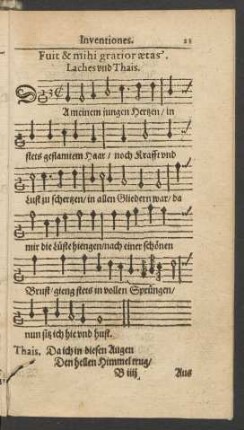 Inventiones. 21
Fuit & mihi gratior ætas'.
Laches vnd Thais.
A meinem jungen Hertzen/ in
stets geflamtem Haar/ noch Krafft vnd
Lust zu schertzen/ in allen Gliedern war/ da
mir die Lüste hiengen/ nach einer schönen
Brust/ gieng stets in vollen Sprüngen/
nun sitz ich hie vnd hust.
Thais. Da ich in diesen Augen
Den hellen Himmel trug/
B iiij Aus